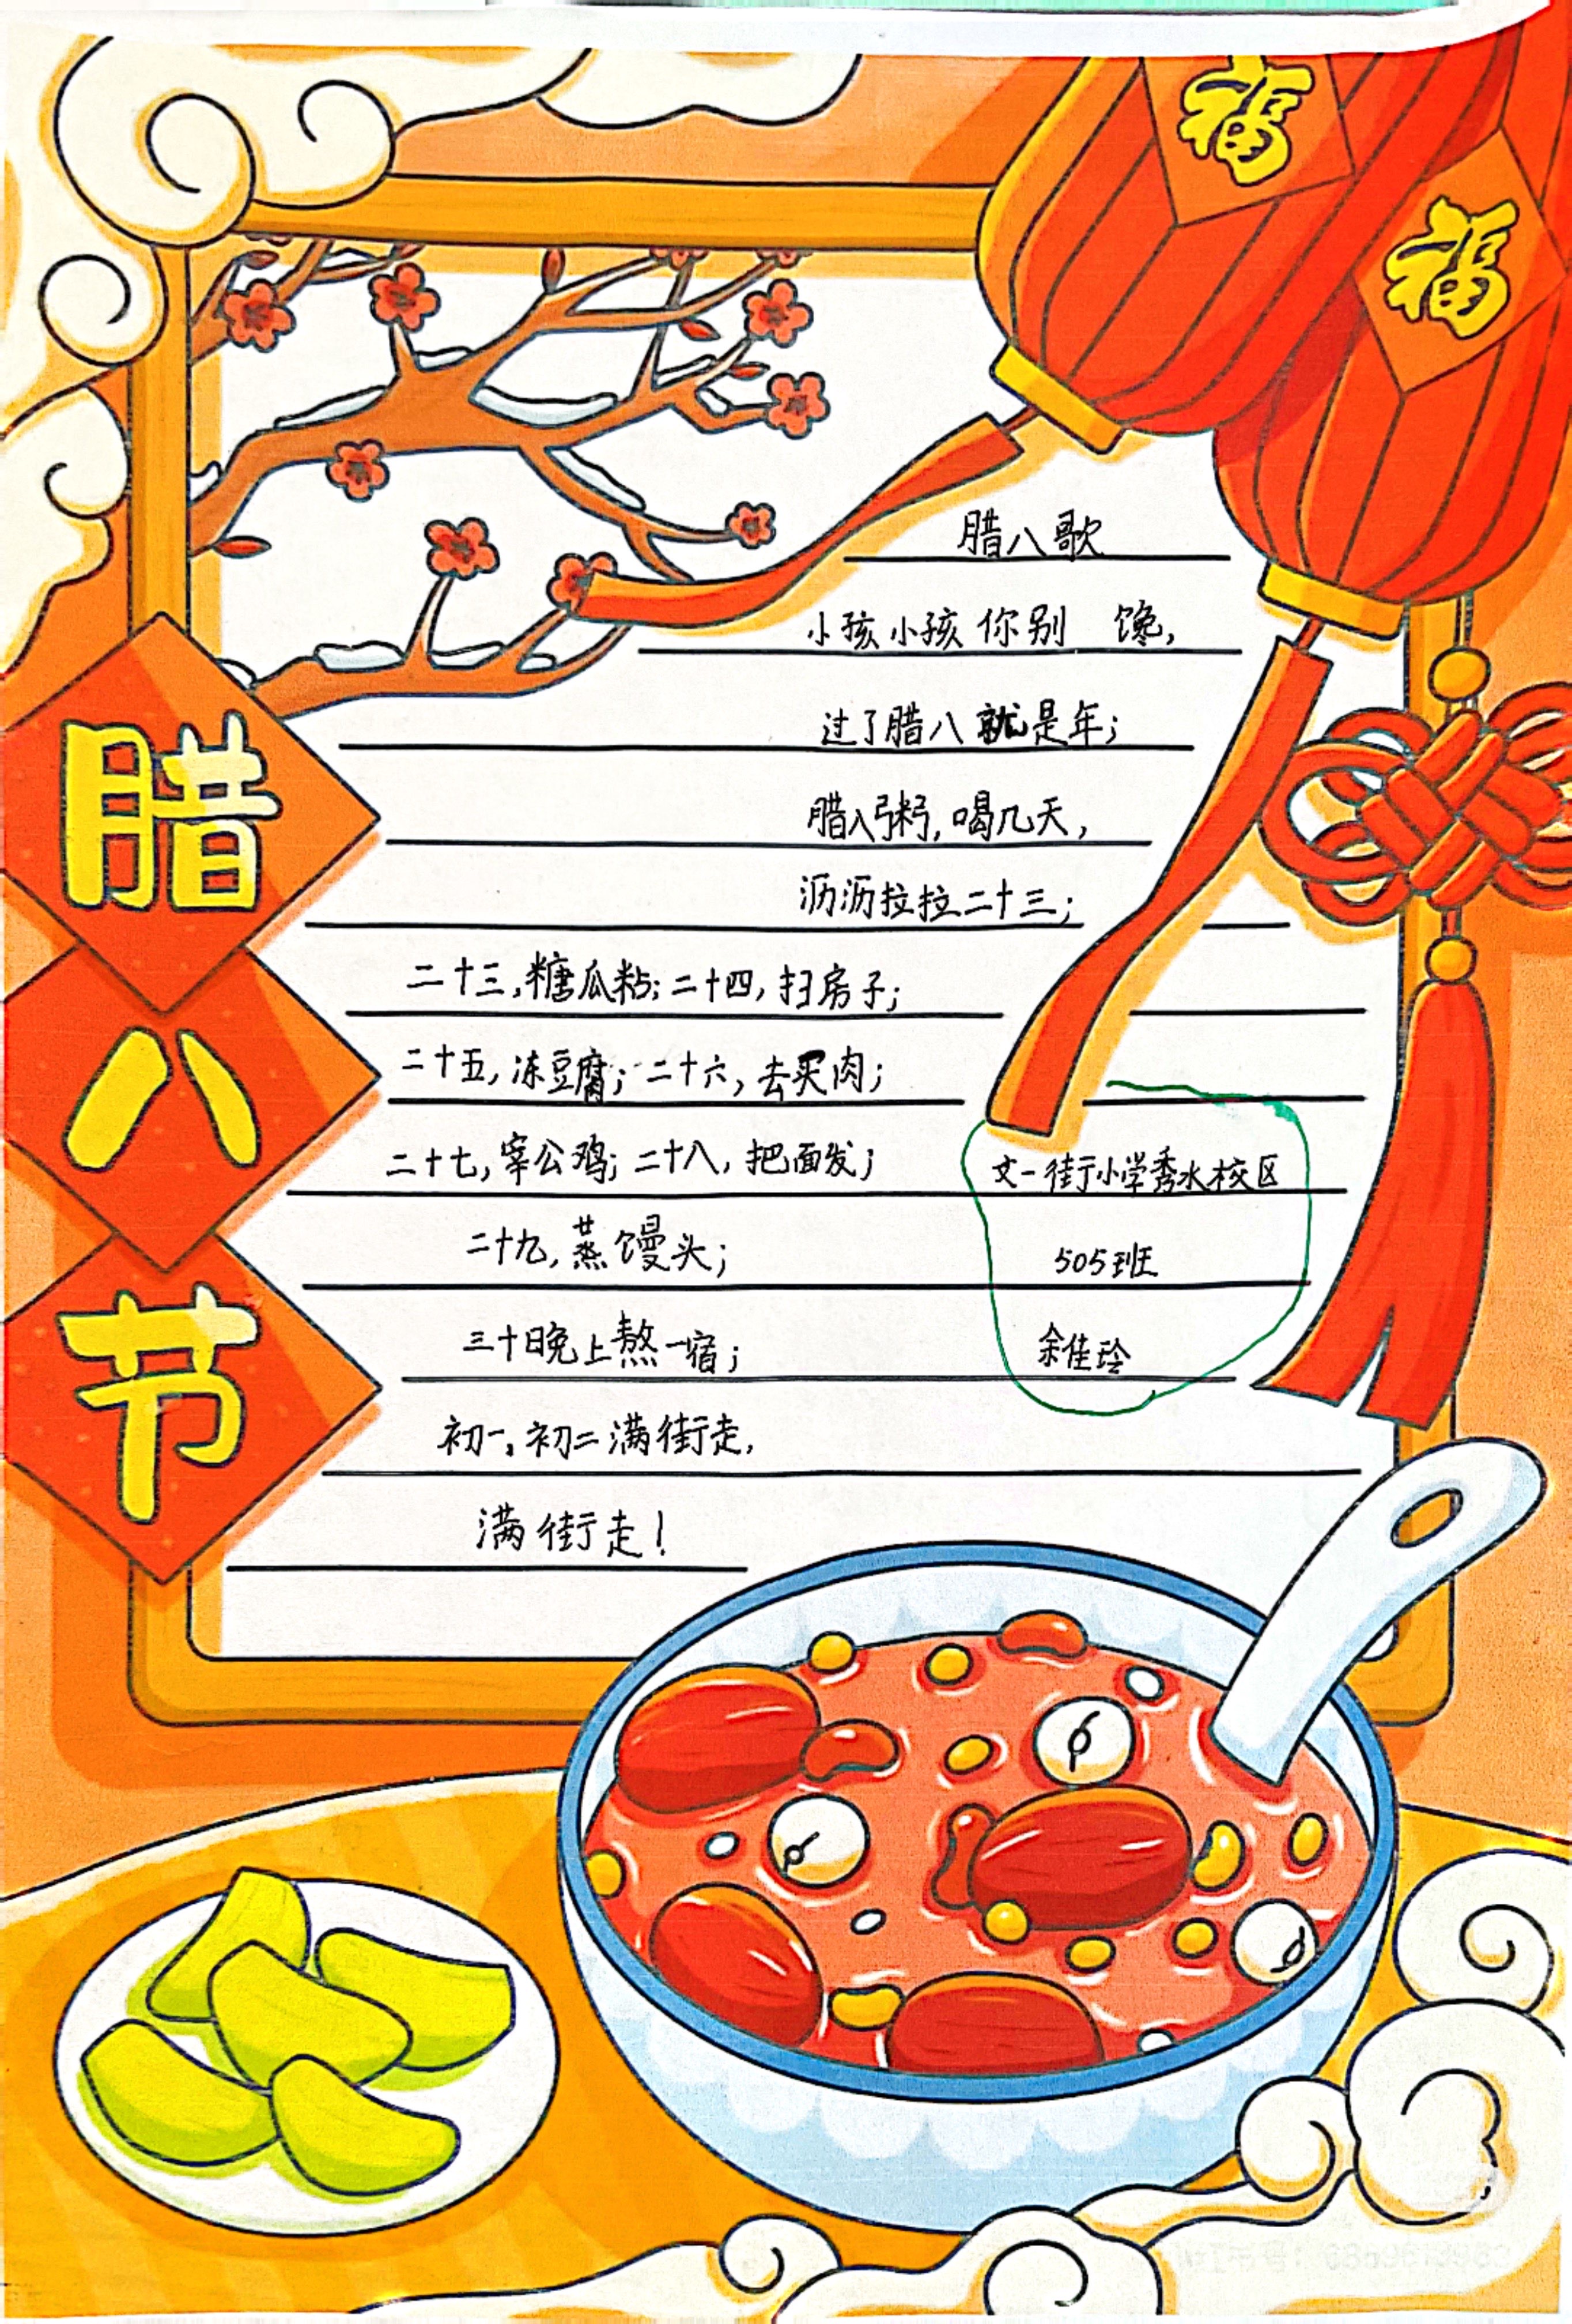 福
福
腊八节
腊八歌
小孩小孩你别 馋,
过了腊八就是年;
腊八粥,喝几天,
沥沥拉拉二十三;
二十三,糖瓜粘;二十四,扫房子;
二十五,冻豆腐;二十六,去买肉;
二十七,宰公鸡;二十八,把面发;
二十九,蒸馒头;
三十日晚上熬一宿;
初一,初二满街走,
满街走!
文一街小学秀水校区
505班
余佳玲